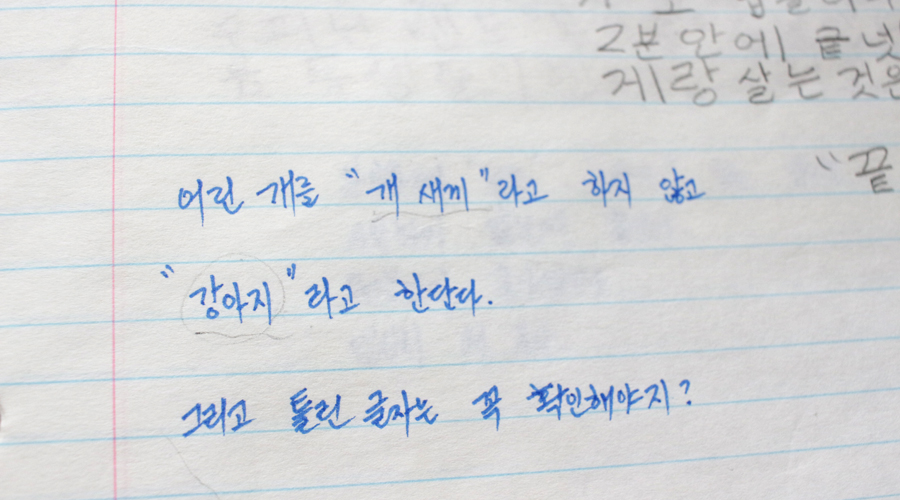 2분 안에 끝넷
제랑 살는 것은
"끝
어린 개를 "개 새끼"라고 하지 않고
"강아지"라고 한단다.
그리고 틀린 글자는 꼭 확인해야지?